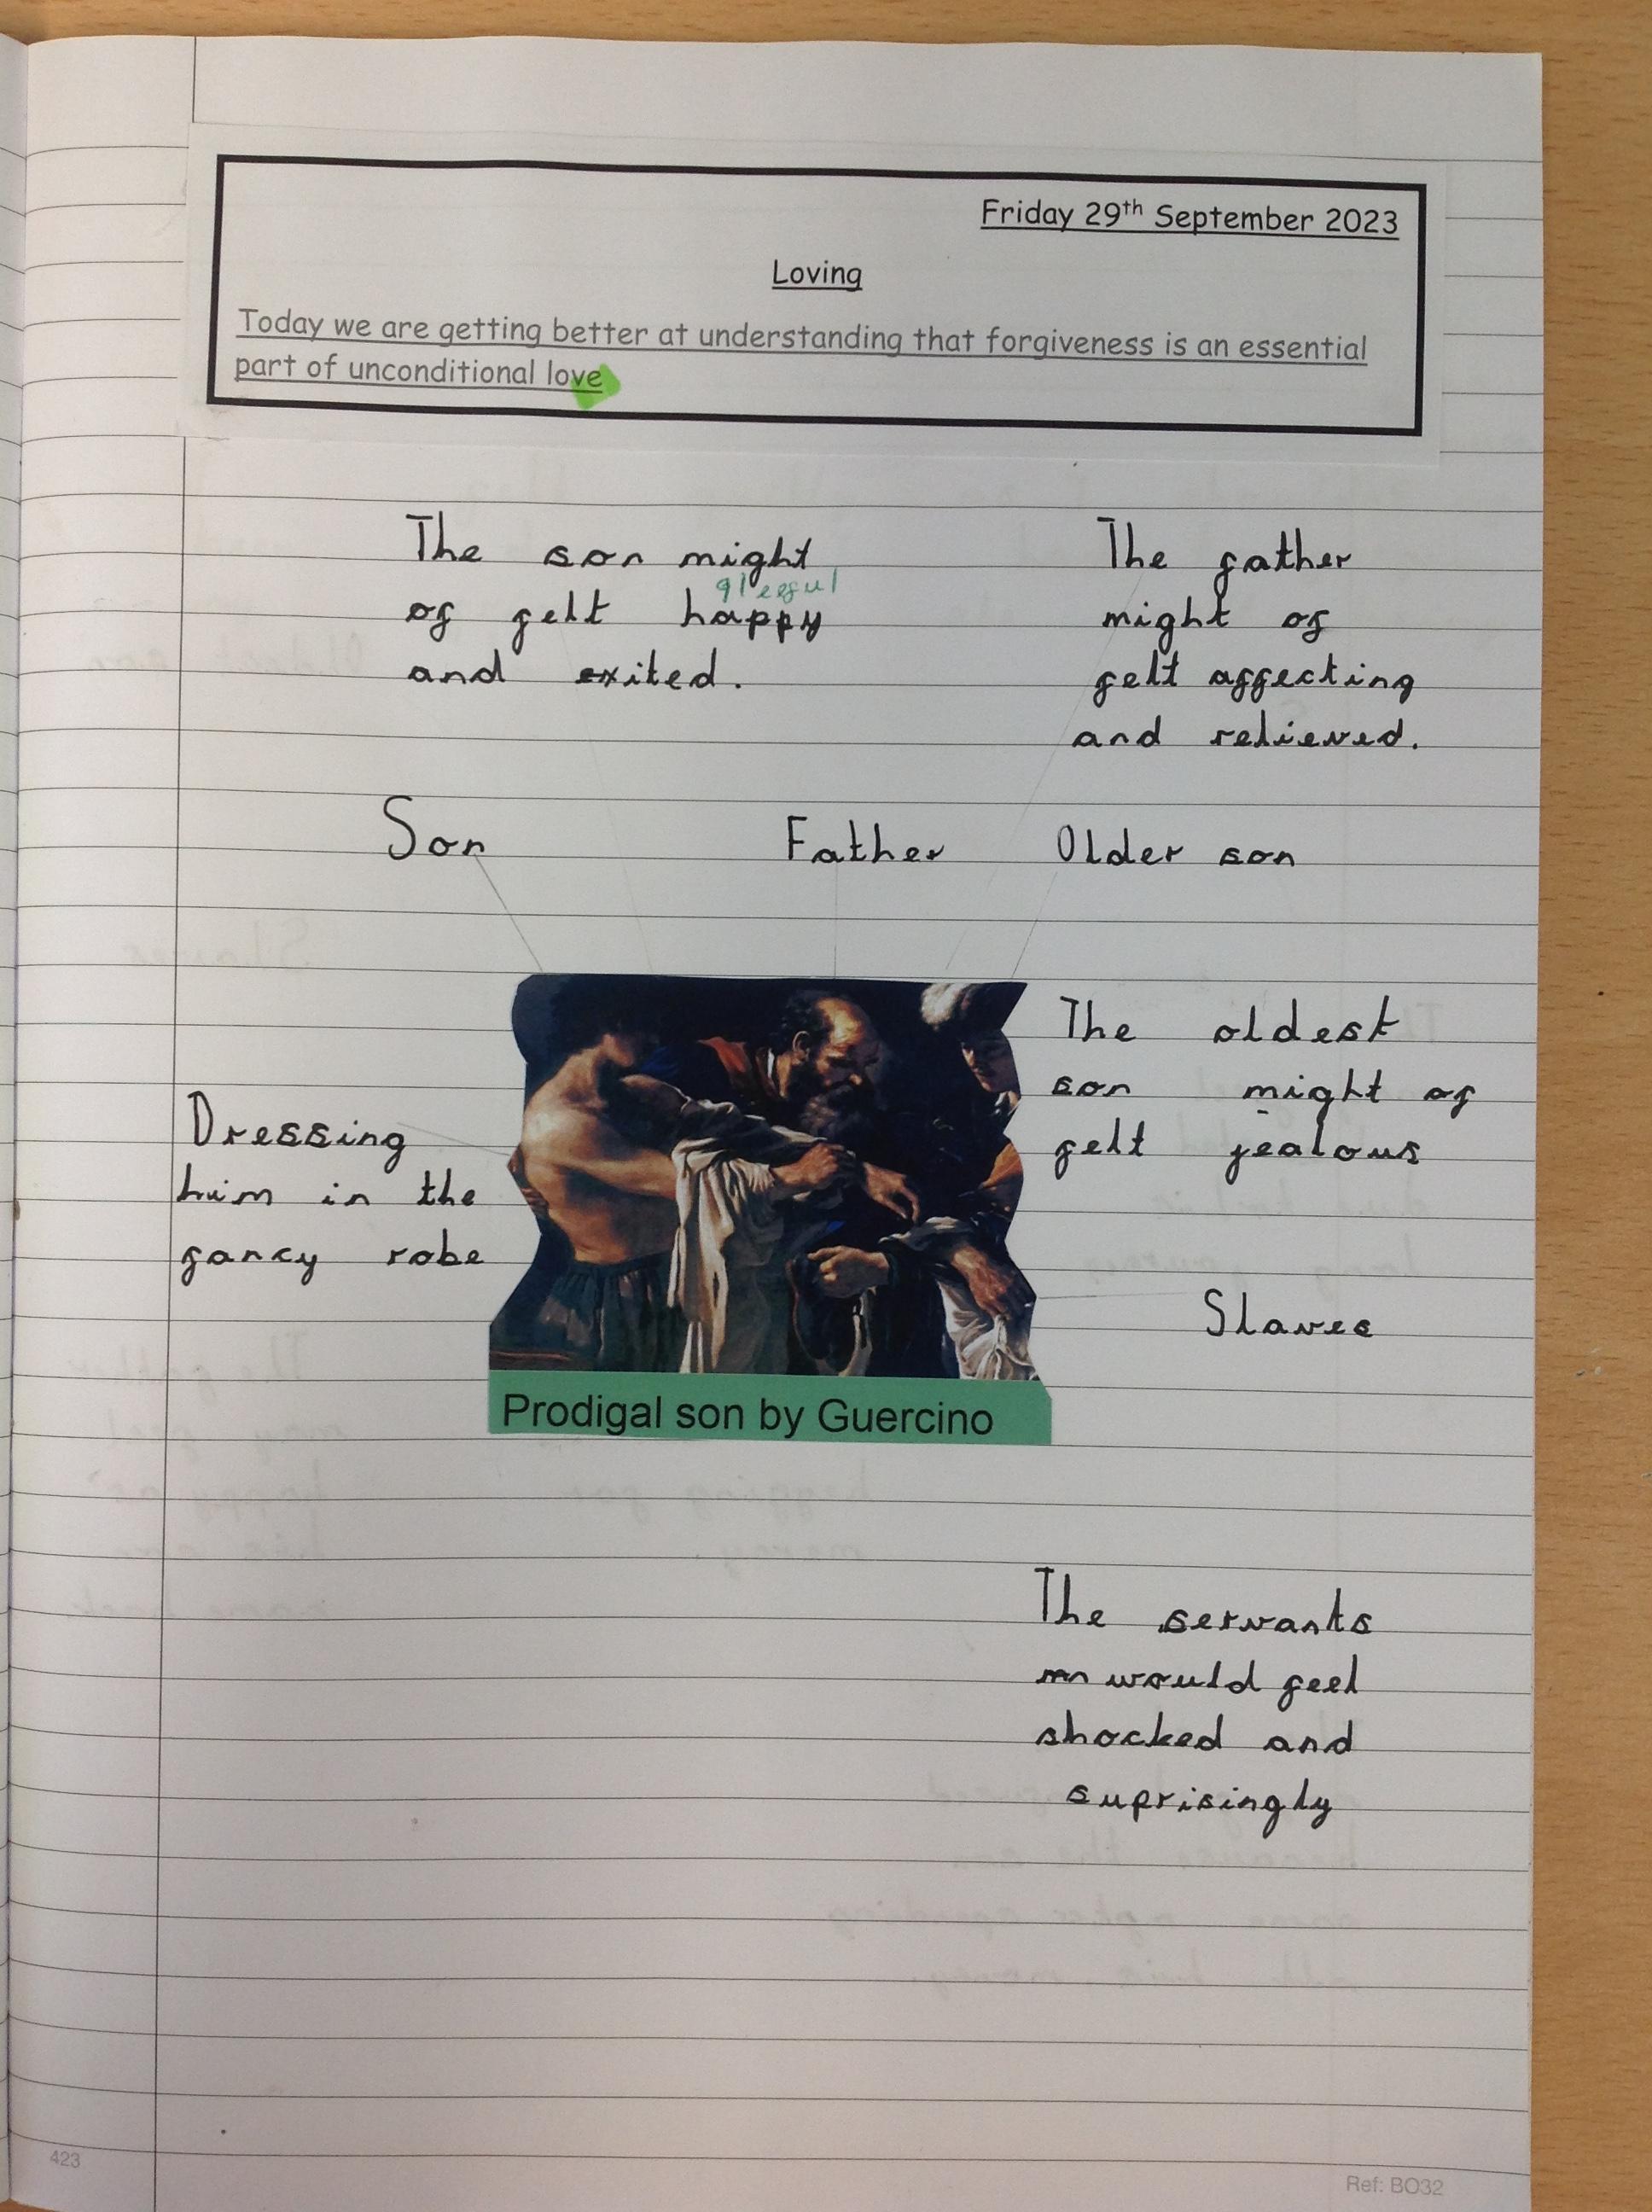 Friday 29th September 2023
Loving
Today we are getting better at understanding that forgiveness is an essential
part of unconditional love
The son might
gleeful
of felt happy
and exited.
The father
might of
felt affecting
and relieved.
Son
Father
Older son
The oldest
son might of
felt jealous
Dressing
him in the
fancy robe
Slaves
Prodigal son by Guercino
The servants
would feel
shocked and
suprisingly
423
Ref: BO32